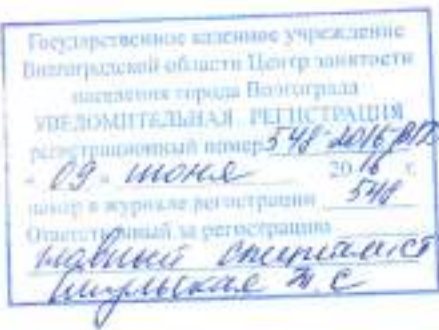 Государственное казенное учреждение
Волгоградской области Центр занятости
населения города Волгограда
УВЕДОМИТЕЛЬНАЯ РЕГИСТРАЦИЯ
регистрационный номер 548-2016
" 09 " июня 20 16 г.
номер в журнале регистрации 548
Ответственный за регистрацию
главный специалист